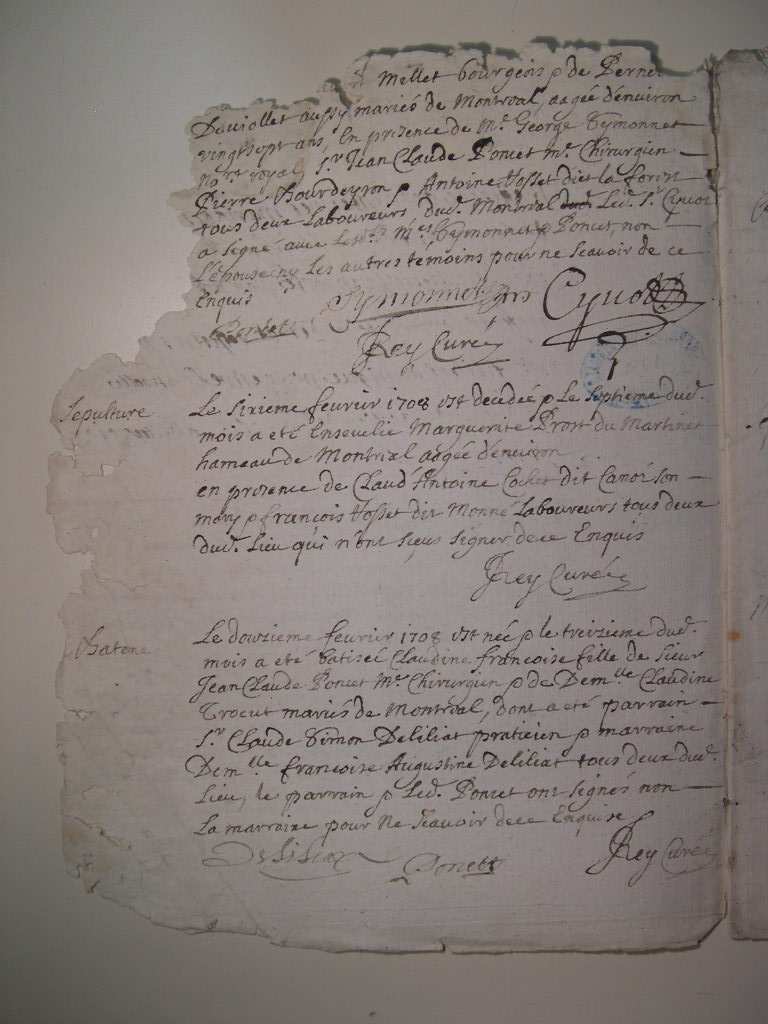 Millet bourgeois & de Perne
Duviollet aussy mariés de Montreal, aagée d'environ
vingt sept ans, En presence de Me. George Symonnet
no.re royal, Sr. Jean Claude Poncet me. Chirurgien —
Pierre Bourdeyron & Antoine Vosset dict la forest
tous deux Laboureurs dud. Montreal Led. Sr. Cynot
a signé avec Lesd.s Mes. Symonnet & Poncet, non —
L'épouse ny Les autres témoins pour ne Scavoir de ce
Enquis
Symonnet Cynot
Poncet
JRey Curé
Sepulture
Le Sixieme fevrier 1708 est décédée & Le Septieme dud.
mois a eté Ensevelie Marguerite Prost du Martinet
hameau de Montreal aagée d'environ
en presence de Claud' Antoine Cochet dit Canoz son —
mary & françois Vosset dit Monne Laboureurs tous deux
dud. Lieu qui n'ont sceus signer de ce Enquis
JRey Curé
Bateme
Le douzieme fevrier 1708 est née & le treizieme dud.
mois a eté batisée Claudine françoise fille de Sieur
Jean Claude Poncet Me. Chirurgien & de Dem.lle Claudine
Trocut mariés de Montréal, dont a eté parrain —
Sr. Claude Simon Deliliat praticien & marraine
Dem.lle françoise Augustine Deliliat tous deux dud.
Lieu, le parrain & Led. Poncet ont signés non —
La marraine pour Ne Scavoir de ce Enquise
Deliliat Poncet JRey Curé